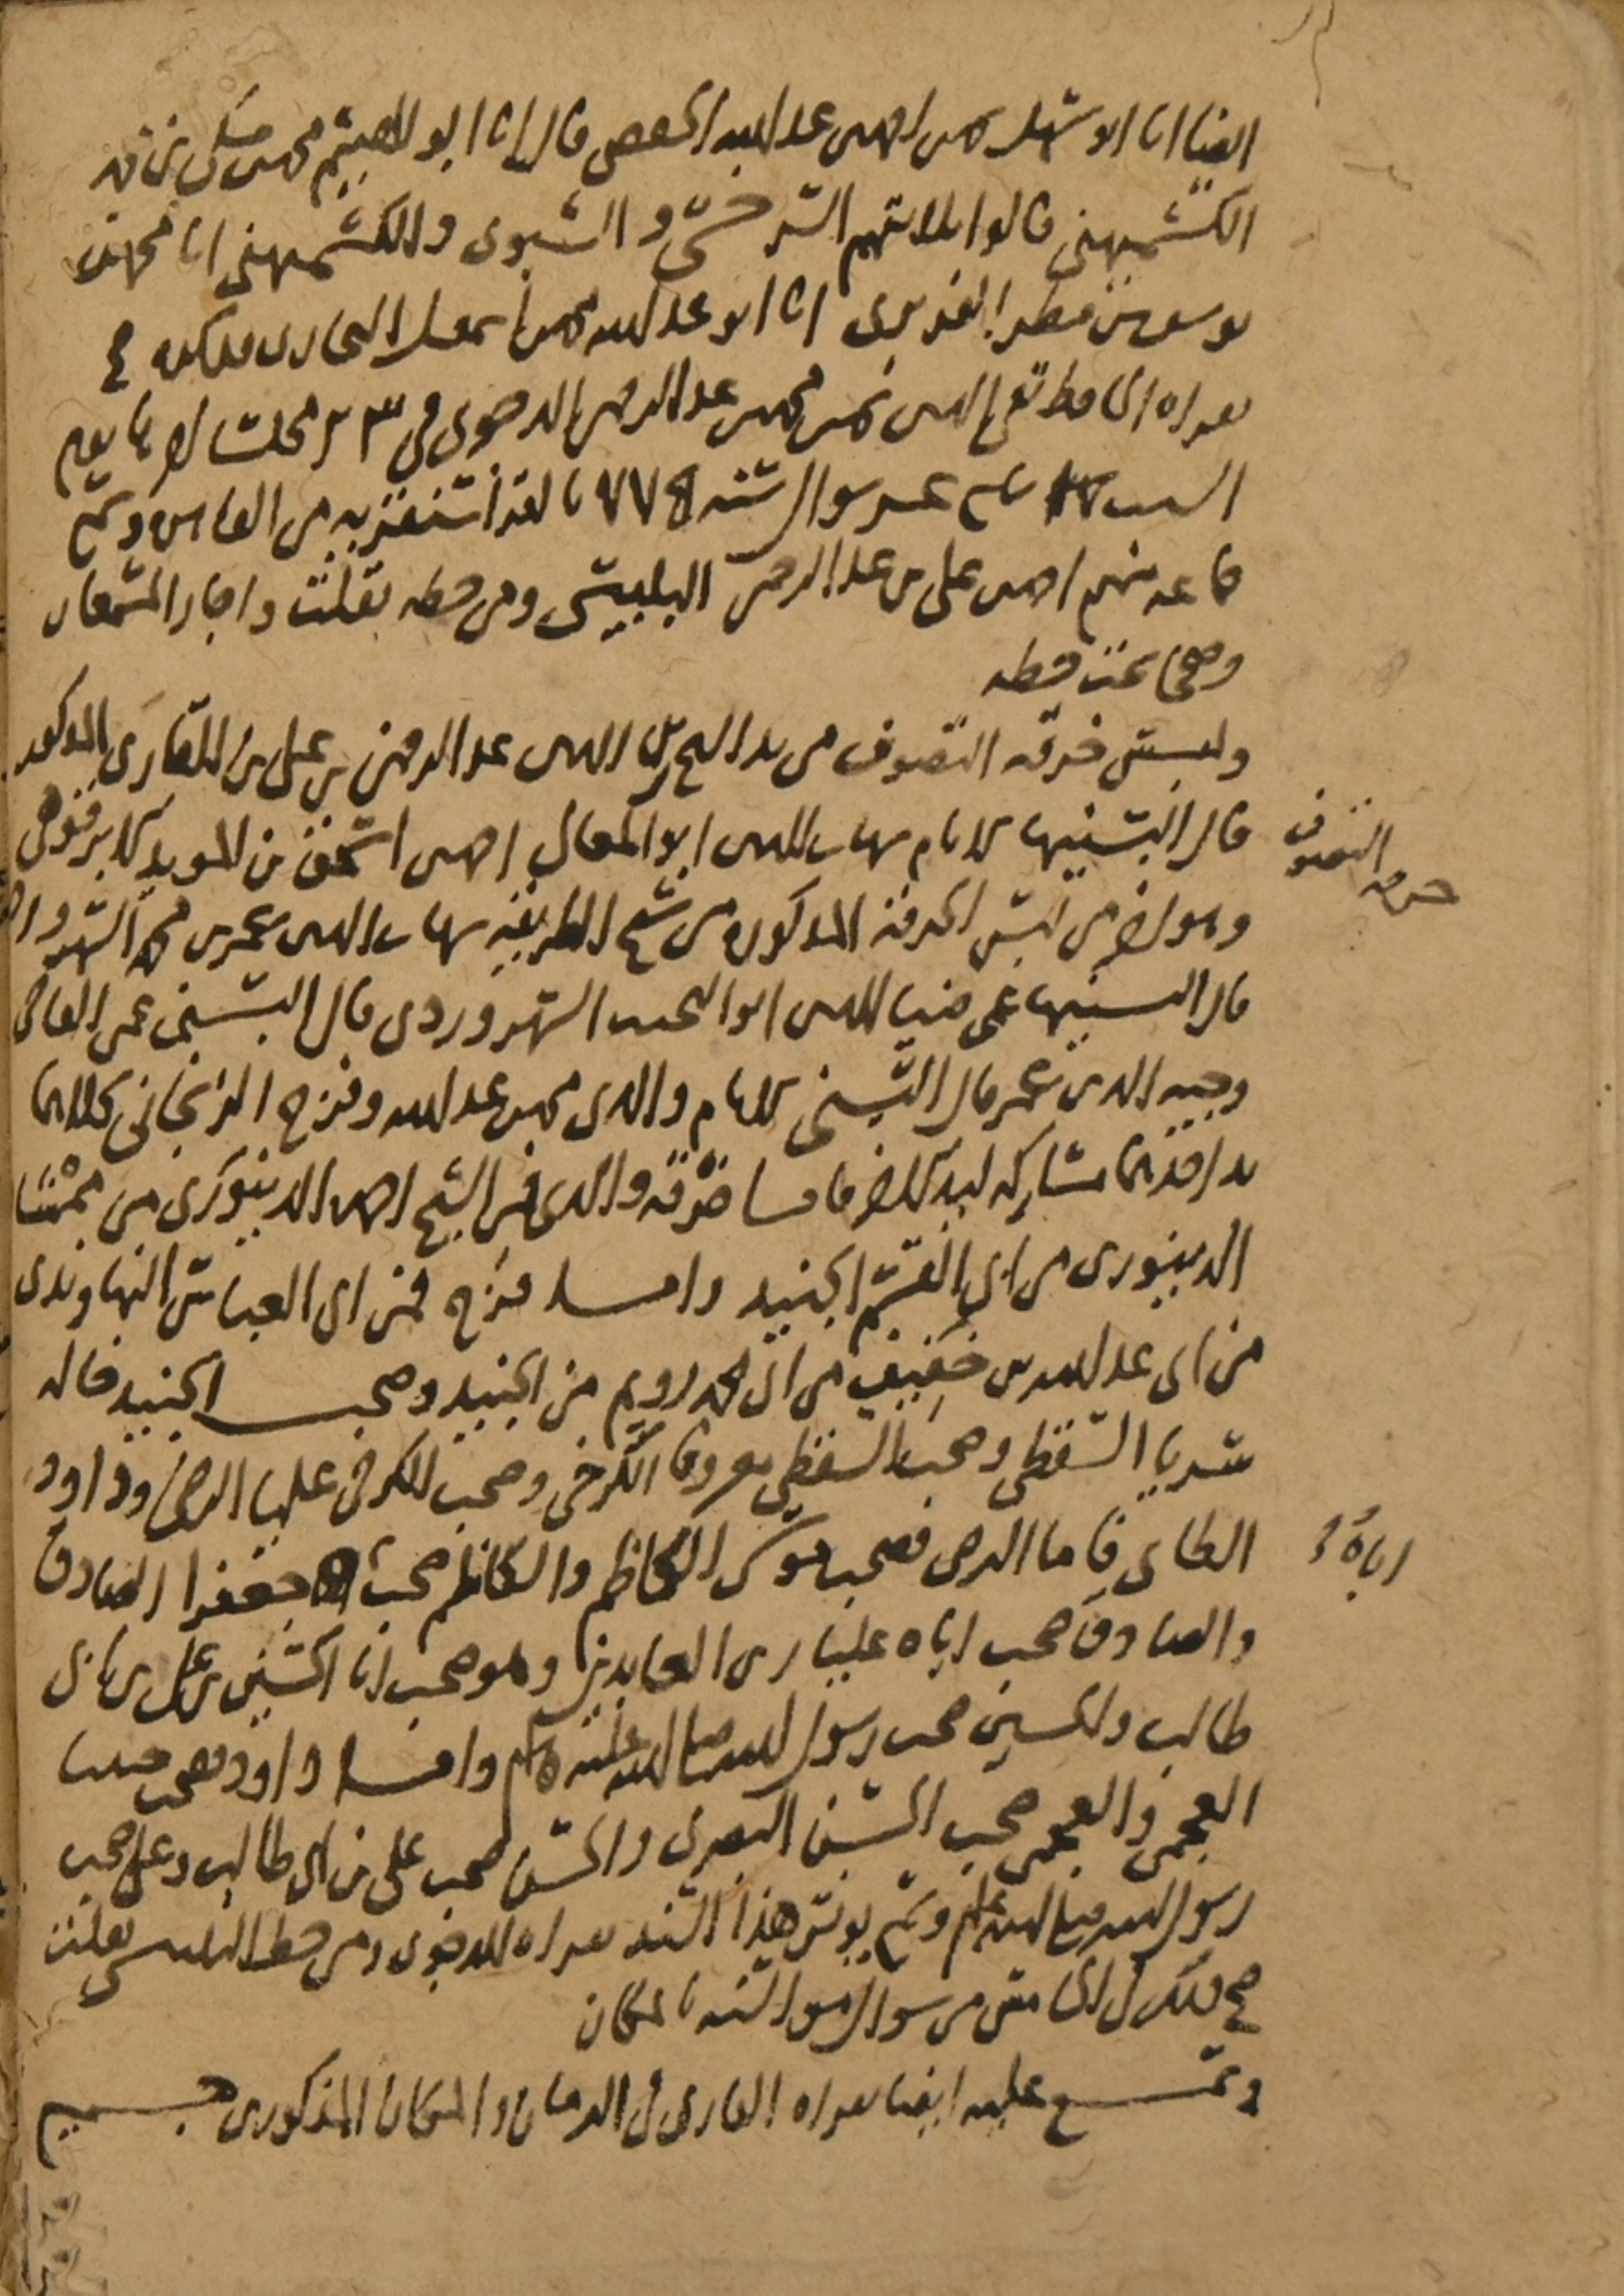 ايضا انا ابو سهل محمد بن احمد بن عبد الله الحفصي قال انا ابو الهيثم محمد بن مكي بن
الكشميهني قالوا ثلاثتهم السرخسي والشبوي والكشميهني انا محمد بن
يوسف بن مطر الفربري انا ابو عبد الله محمد بن اسمعيل البخاري فذكره صح
بقراة الحافظ تقي الدين محمد بن محمد بن عبد الرحمن الدجوي في ٢٣ مجلسا اخرها يوم
السبت عشر شوال سنة ٧٧٥
جماعة منهم احمد بن علي بن عبد الرحمن البلبيسي ومن خطه نقلت واجاز المسمعان
وصححا تحت خطه
ولبس خرقة التصوف من يد الشيخ زين الدين عبد الرحمن بن علي بن القاري المذكور
قال البسنيها الامام شهاب الدين ابو المعالي احمد بن اسحق بن المويد الابرقوهي
وهو اخر من لبس الخرقة المذكورة من شيخ الطريقة شهاب الدين عمر بن محمد السهروردي
قال البسنيها عمي ضيا الدين ابو النجيب السهروردي قال البسني عمي القاضي
وجيه الدين عمر قال البسني الامام والدي محمد بن عبد الله وفرج الزنجاني كلاهما
يد احدهما مشاركة ليد الاخر فاما خرقة والدي فمن الشيخ احمد الدينوري من ممشاد
الدينوري من ابي القسم الجنيد واما فرج فمن ابي العباس النهاوندي
من ابي عبد الله بن خفيف من ابي محمد رويم من الجنيد وصحب الجنيد خاله
سريا السقطي وصحب السقطي معروفا الكرخي وصحب الكرخي عليا الرضى وداود
الطاي فاما الرضى فصحب موسى الكاظم والكاظم صحب جعفرا الصادق
والصادق صحب اباه عليا زين العابدين وهو صحب ابا الحسين بن علي بن ابي
طالب والحسين صحب رسول الله صلى الله عليه وسلم واما داود فصحب حبيبا
العجمي والعجمي صحب الحسن البصري والحسن صحب علي بن ابي طالب وعلي صحب
رسول الله صلى الله عليه وسلم وسمع يونس هذا السند بقراة الدجوي ومن خط البلبيسي نقلت
صح ذلك في الخامس من شوال
وسمع عليه ايضا بقراة القاري في الزمان والمكان المذكورين جميع
خرقة التصوف
اباه